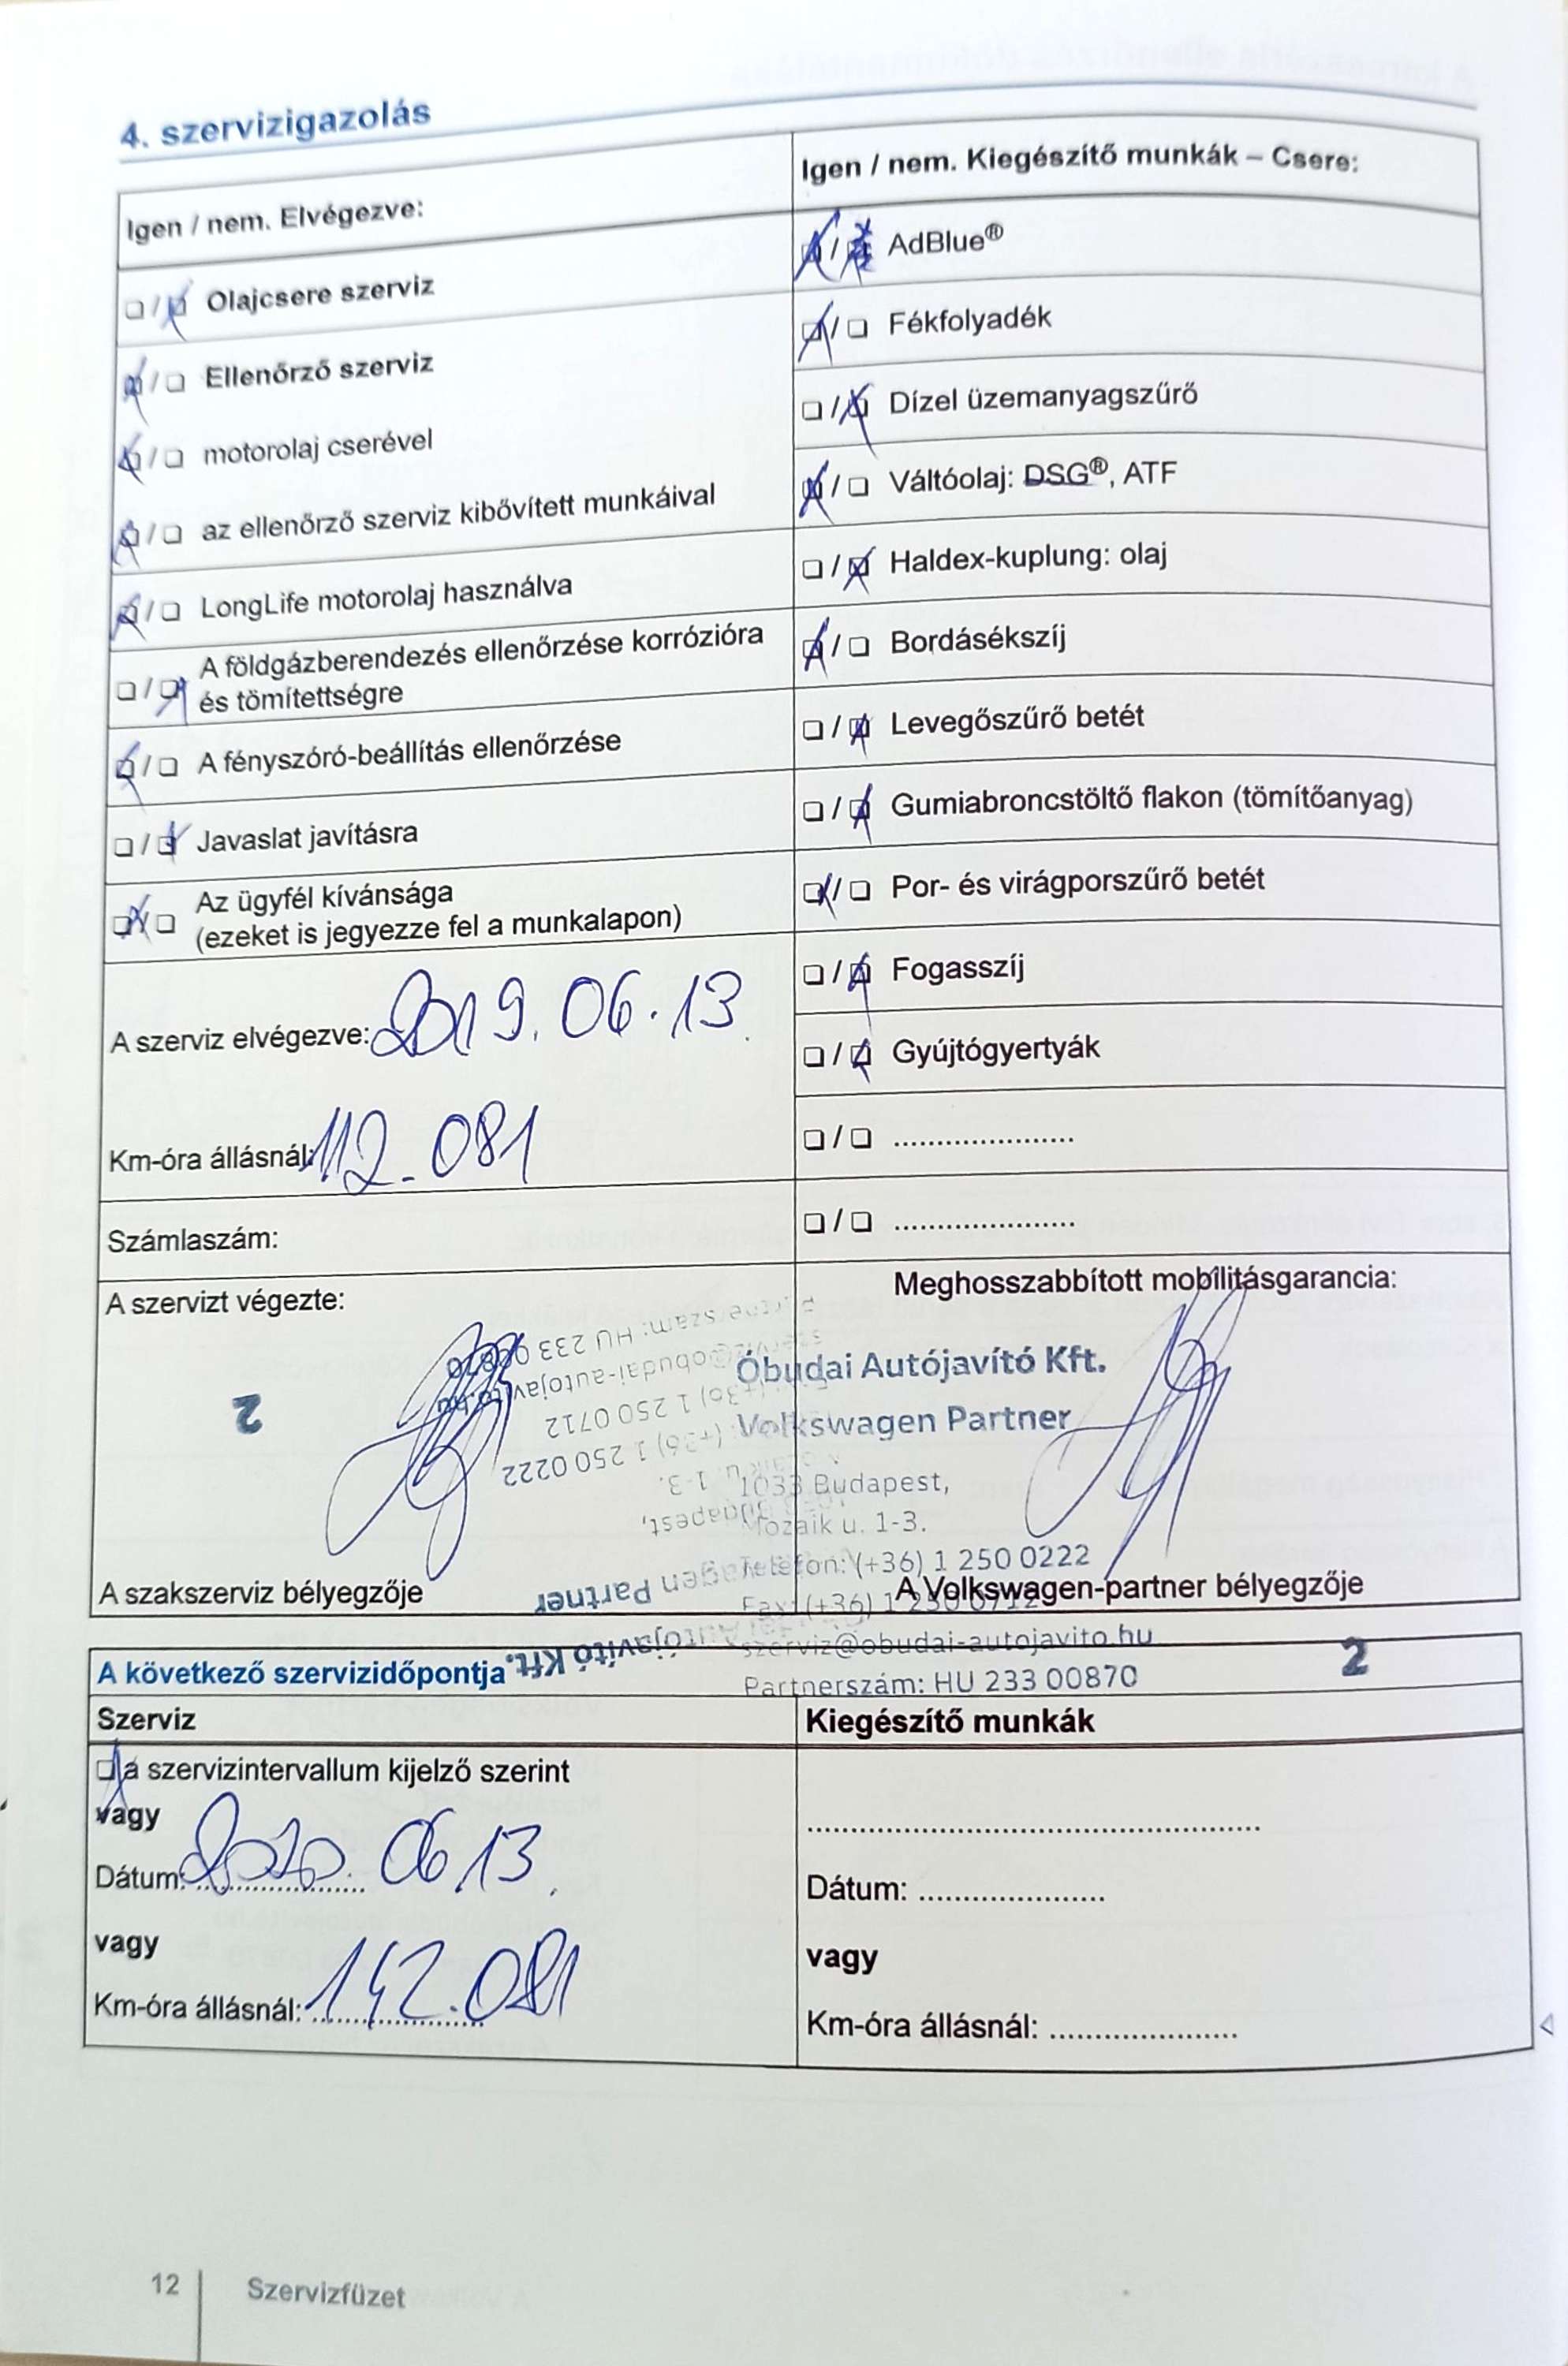 4. szervizigazolás
Igen / nem. Elvégezve:
❏ / ❏ Olajcsere szerviz
❏ / ❏ Ellenőrző szerviz
❏ / ❏ motorolaj cserével
❏ / ❏ az ellenőrző szerviz kibővített munkáival
❏ / ❏ LongLife motorolaj használva
❏ / ❏ A földgázberendezés ellenőrzése korrózióra
és tömítettségre
❏ / ❏ A fényszóró-beállítás ellenőrzése
❏ / ❏ Javaslat javításra
❏ / ❏ Az ügyfél kívánsága
(ezeket is jegyezze fel a munkalapon)
A szerviz elvégezve: 2019. 06. 13.
Km-óra állásnál: 112.081
Számlaszám:
A szervizt végezte:
A szakszerviz bélyegzője
Igen / nem. Kiegészítő munkák – Csere:
❏ / ❏ AdBlue®
❏ / ❏ Fékfolyadék
❏ / ❏ Dízel üzemanyagszűrő
❏ / ❏ Váltóolaj: DSG®, ATF
❏ / ❏ Haldex-kuplung: olaj
❏ / ❏ Bordásékszíj
❏ / ❏ Levegőszűrő betét
❏ / ❏ Gumiabroncstöltő flakon (tömítőanyag)
❏ / ❏ Por- és virágporszűrő betét
❏ / ❏ Fogasszíj
❏ / ❏ Gyújtógyertyák
❏ / ❏ .....................
❏ / ❏ .....................
Meghosszabbított mobilitásgarancia:
Óbudai Autójavító Kft.
Volkswagen Partner
1033 Budapest,
Mozaik u. 1-3.
Telefon: (+36) 1 250 0222
Fax: (+36) 1 250 0712
szerviz@obudai-autojavito.hu
Partnerszám: HU 233 00870
2
A Volkswagen-partner bélyegzője
Óbudai Autójavító Kft.
Volkswagen Partner
1033 Budapest,
Mozaik u. 1-3.
Telefon: (+36) 1 250 0222
Fax: (+36) 1 250 0712
szerviz@obudai-autojavito.hu
Partnerszám: HU 233 00870
2
A következő szervizidőpontja
Szerviz
❏ a szervizintervallum kijelző szerint
vagy
Dátum: 2020. 06.13.
vagy
Km-óra állásnál: 142.081
Kiegészítő munkák
.....................................................
Dátum: .....................
vagy
Km-óra állásnál: .....................
12
Szervizfüzet